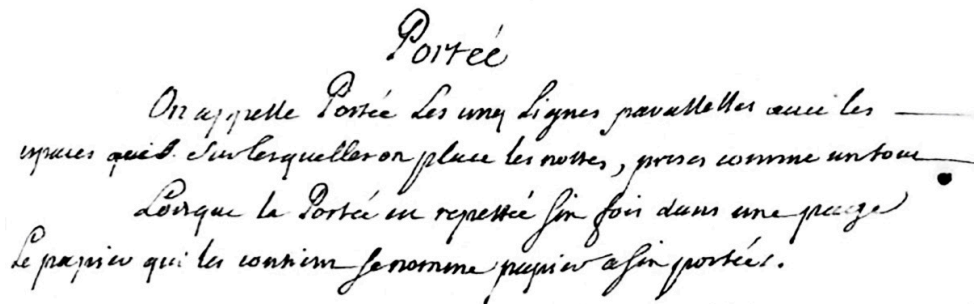 Portée
On appelle Portée Les cinq Lignes paralelles avec les
espaces Sur lesquelles on place les nottes, prises comme un tout
Lorsque la Portée est repettée six fois dans une page
Le papier qui les contient se nomme papier a six portées.